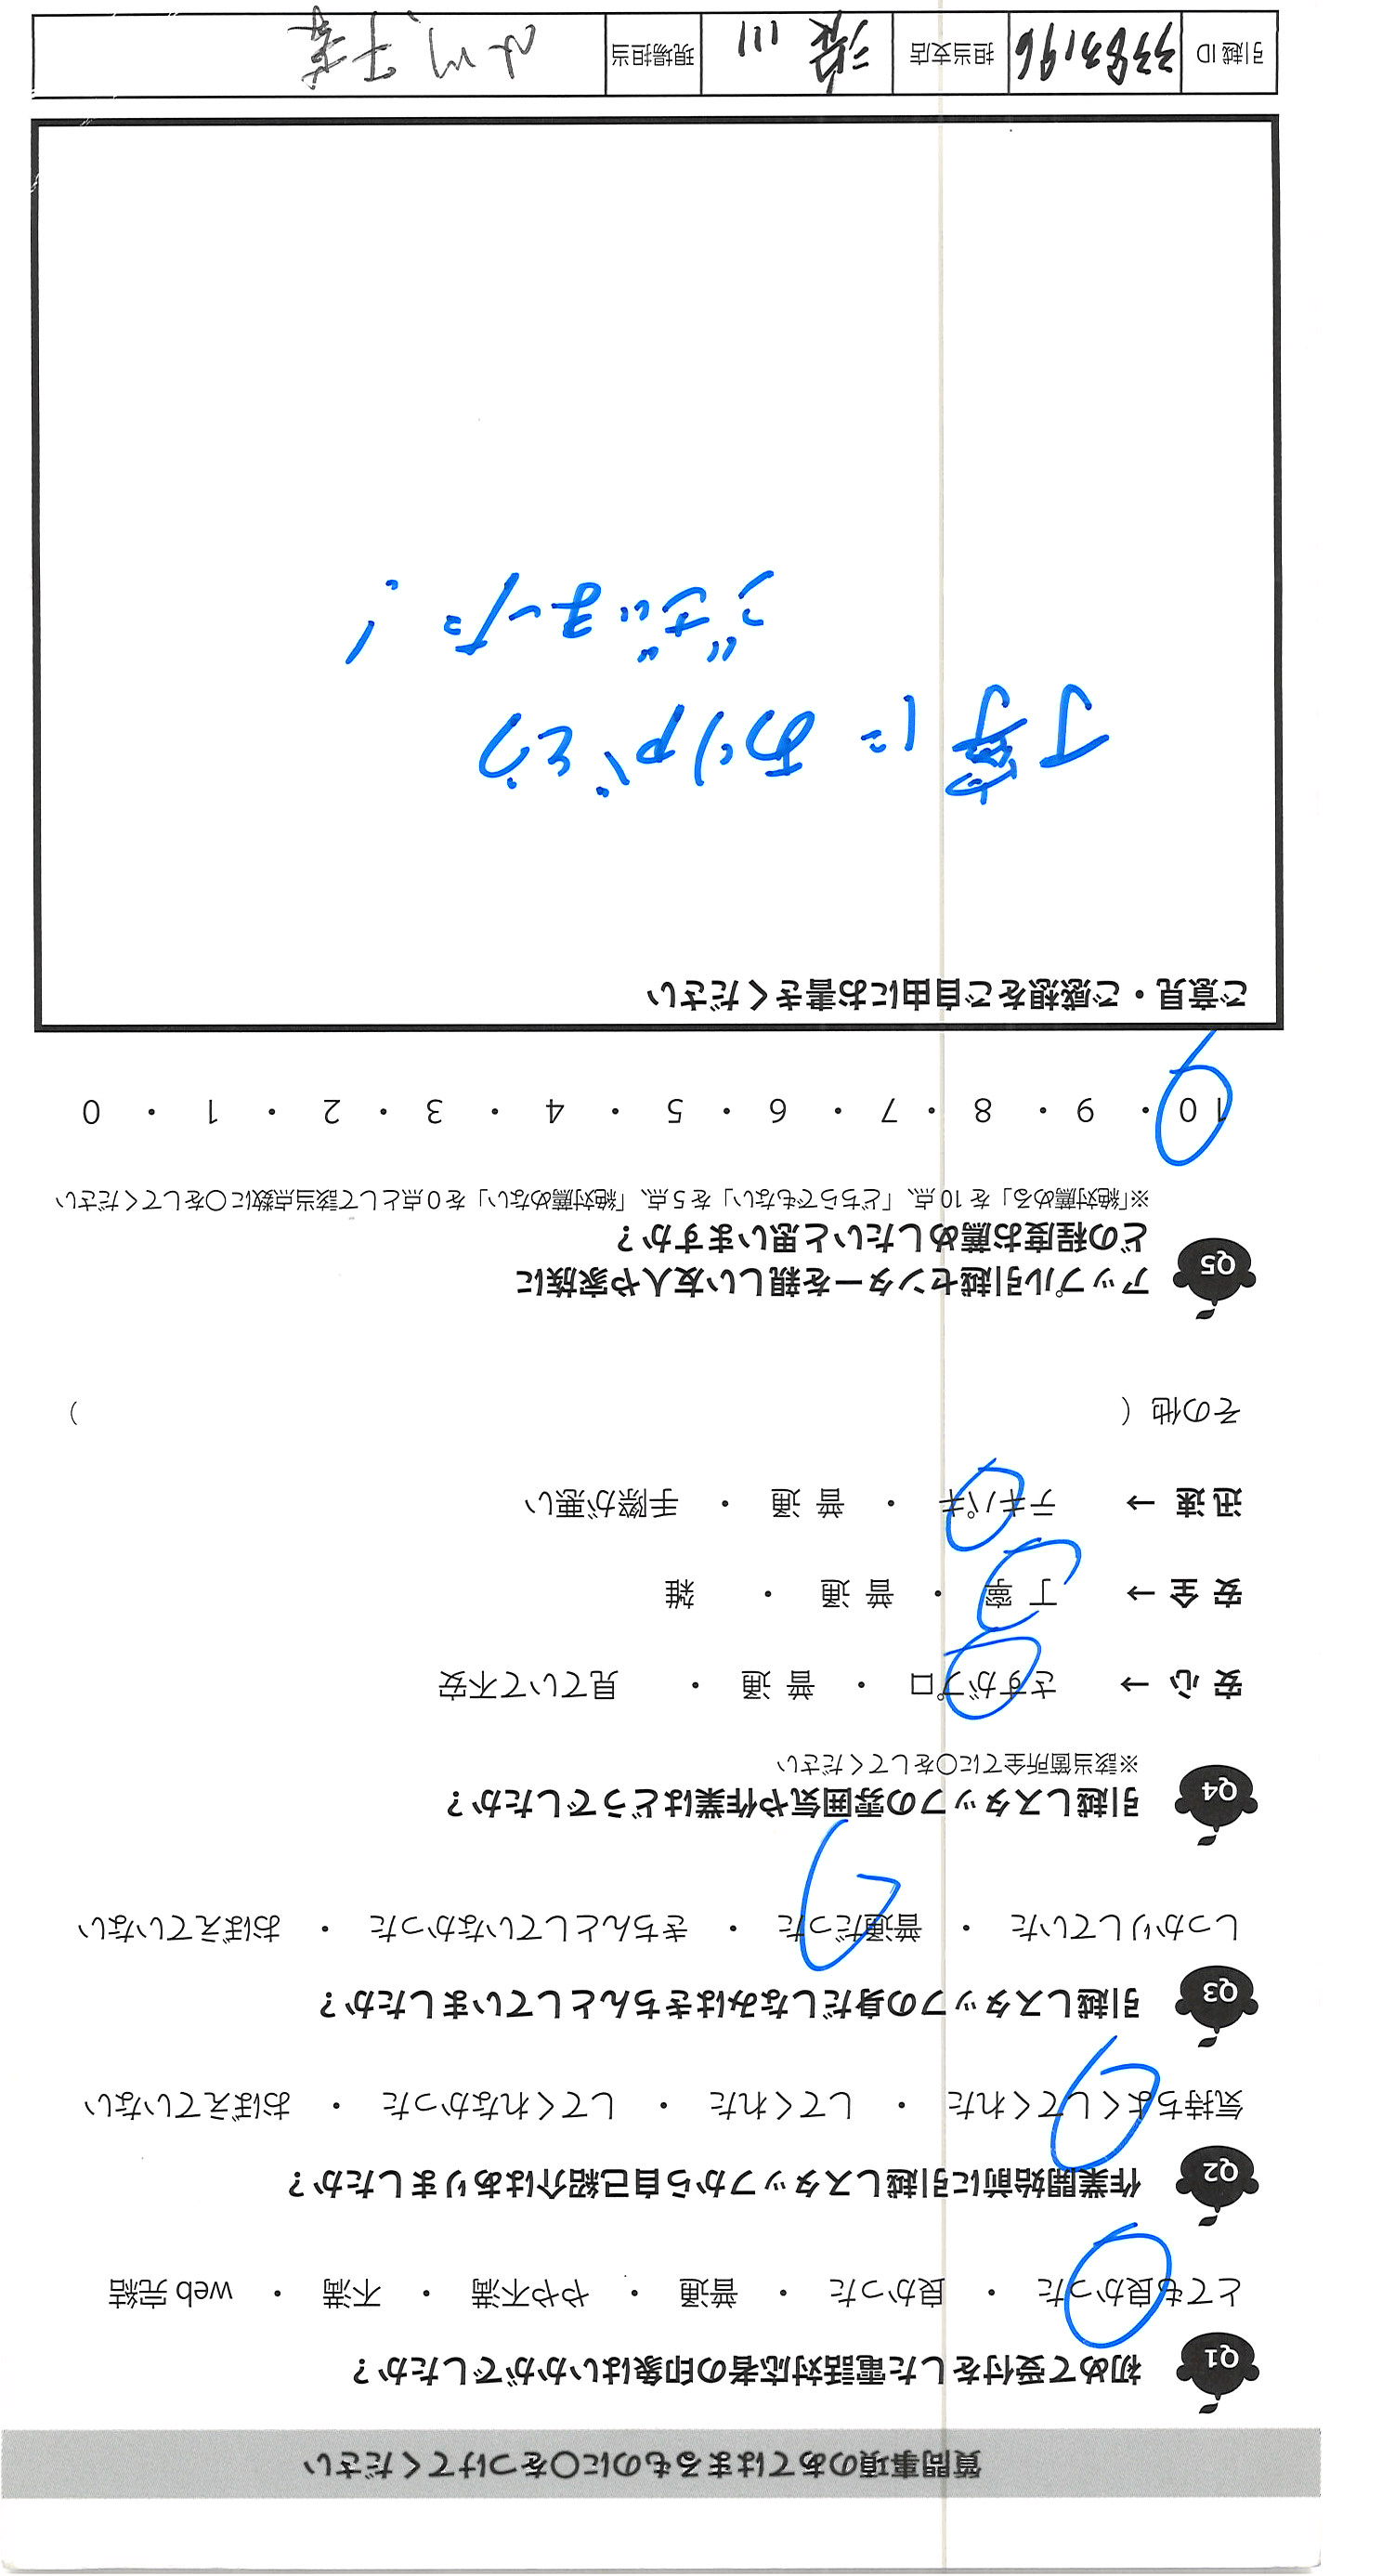 質問事項のあてはまるものに○をつけてください
Q1 初めて受付をした電話対応者の印象はいかがでしたか？
とても良かった ・ 良かった ・ 普通 ・ やや不満 ・ 不満 ・ web 完結
Q2 作業開始前に引越しスタッフから自己紹介はありましたか？
気持ちよくしてくれた ・ してくれた ・ してくれなかった ・ おぼえていない
Q3 引越しスタッフの身だしなみはきちんとしていましたか？
しっかりしていた ・ 普通だった ・ きちんとしていなかった ・ おぼえていない
Q4 引越しスタッフの雰囲気や作業はどうでしたか？
※該当箇所全てに○をしてください
安心 → さすがプロ ・ 普通 ・ 見ていて不安
安全 → 丁寧 ・ 普通 ・ 雑
迅速 → テキパキ ・ 普通 ・ 手際が悪い
その他（ ）
Q5 アップル引越センターを親しい友人や家族に
どの程度お薦めしたいと思いますか？
※「絶対薦める」を 10 点、「どちらでもない」を 5 点、「絶対薦めない」を 0 点として該当点数に○をしてください
10 ・ 9 ・ 8 ・ 7 ・ 6 ・ 5 ・ 4 ・ 3 ・ 2 ・ 1 ・ 0
ご意見・ご感想をご自由にお書きください
丁寧に ありがとう
ございました！
引越 ID 3383196 担当支店 現場担当